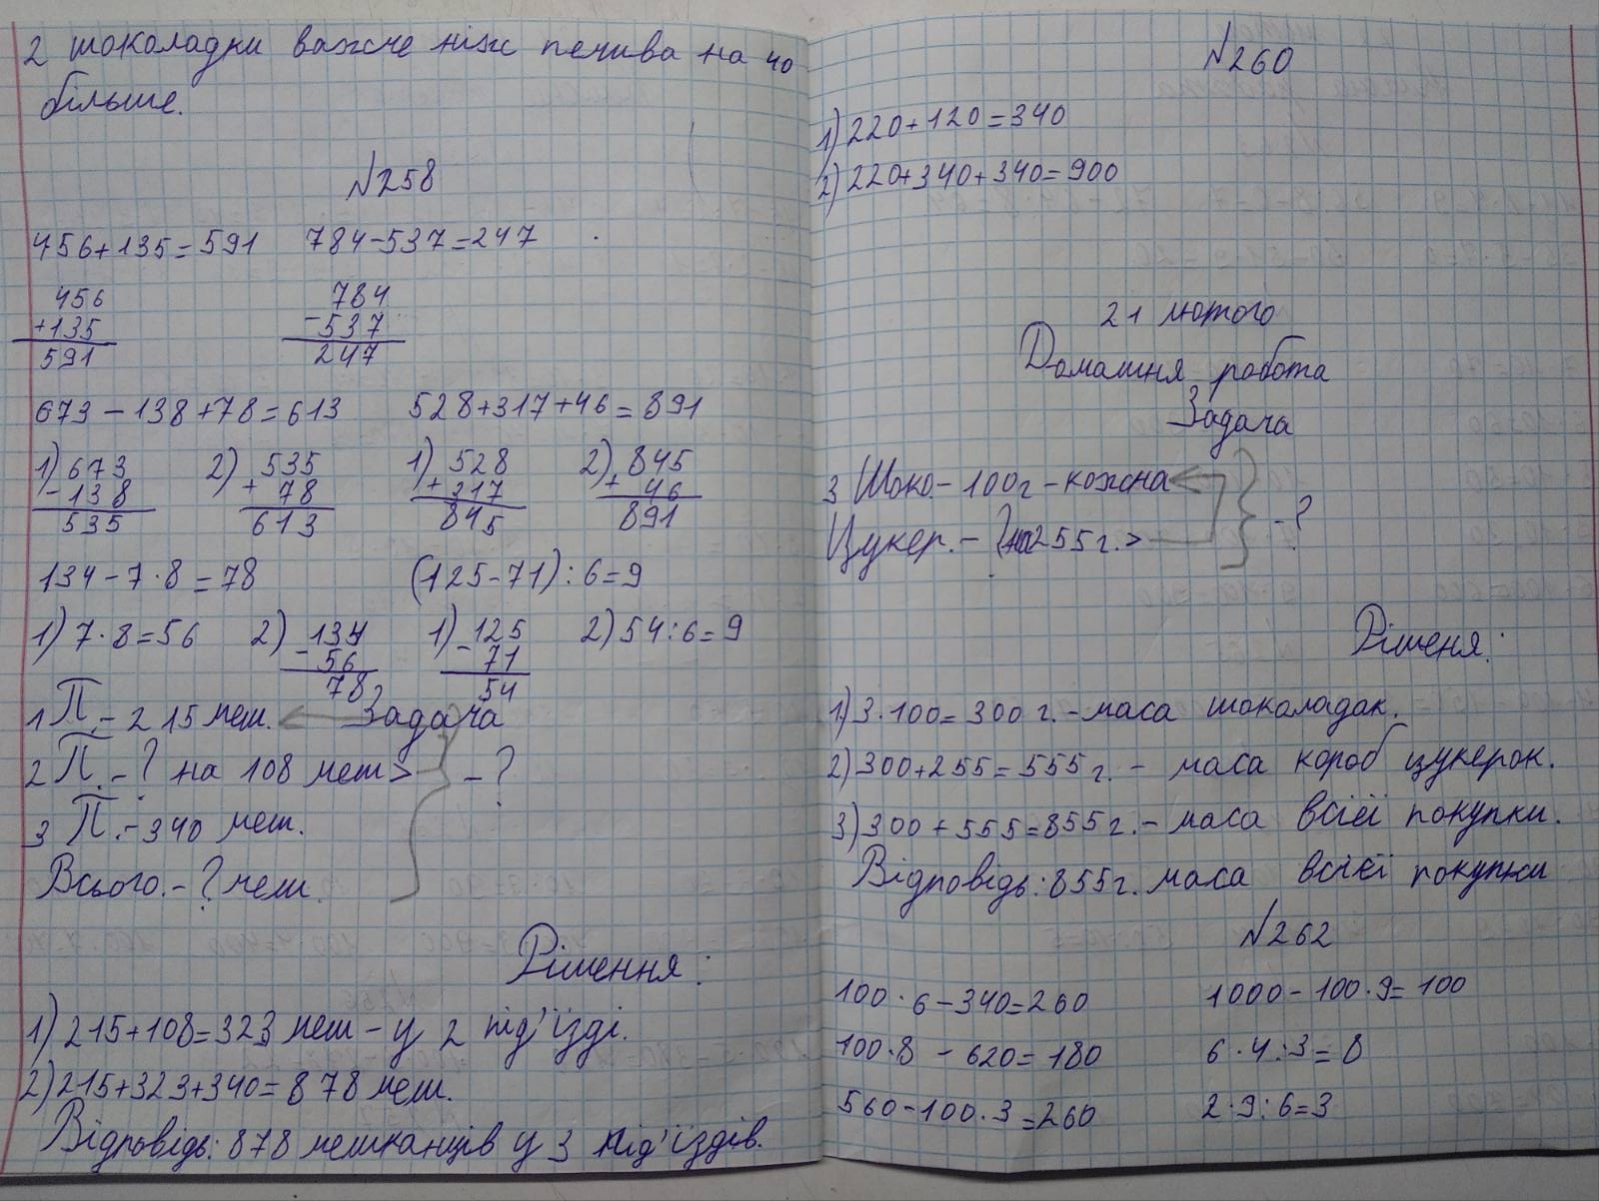 2 шоколадки важче ніж печива на 40
більше.
№258
456+135=591 784-537=247
456
+135
591
784
-537
247
673-138+78=613 528+317+46=891
1) 673
-138
535
2) 535
+ 78
613
1) 528
+317
845
2) 845
+ 46
891
134-7·8=78 (125-71):6=9
1) 7·8=56
2) 134
- 56
78
1) 125
- 71
54
2) 54:6=9
Задача
1 П.- 215 меш.
2 П.-? на 108 меш> -?
3 П.-340 меш.
Всього.-? меш.
Рішення:
1) 215+108=323 меш-у 2 під'їзді.
2) 215+323+340=878 меш.
Відповідь: 878 мешканців у 3 під'їздів.
№260
1) 220+120=340
2) 220+340+340=900
21 лютого
Домашня робота
Задача
3 Шоко-100г-кожна
Цукер.-? на 255г.> -?
Рішеня:
1) 3·100=300г.-маса шоколадак.
2) 300+255=555г.- маса короб цукерок.
3) 300+555=855г.- маса всієї покупки.
Відповідь: 855г. маса всієї покупки
№262
100·6-340=260 1000-100·9=100
100·8-620=180 6·4:3=8
560-100·3=260 2·9:6=3